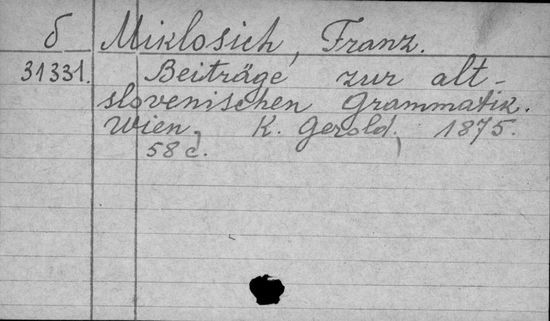 б Miklosich, Franz.
31331. Beiträge zur alt-
slovenischen Grammatik.
Wien, K. Gerold, 1875.
58 с.